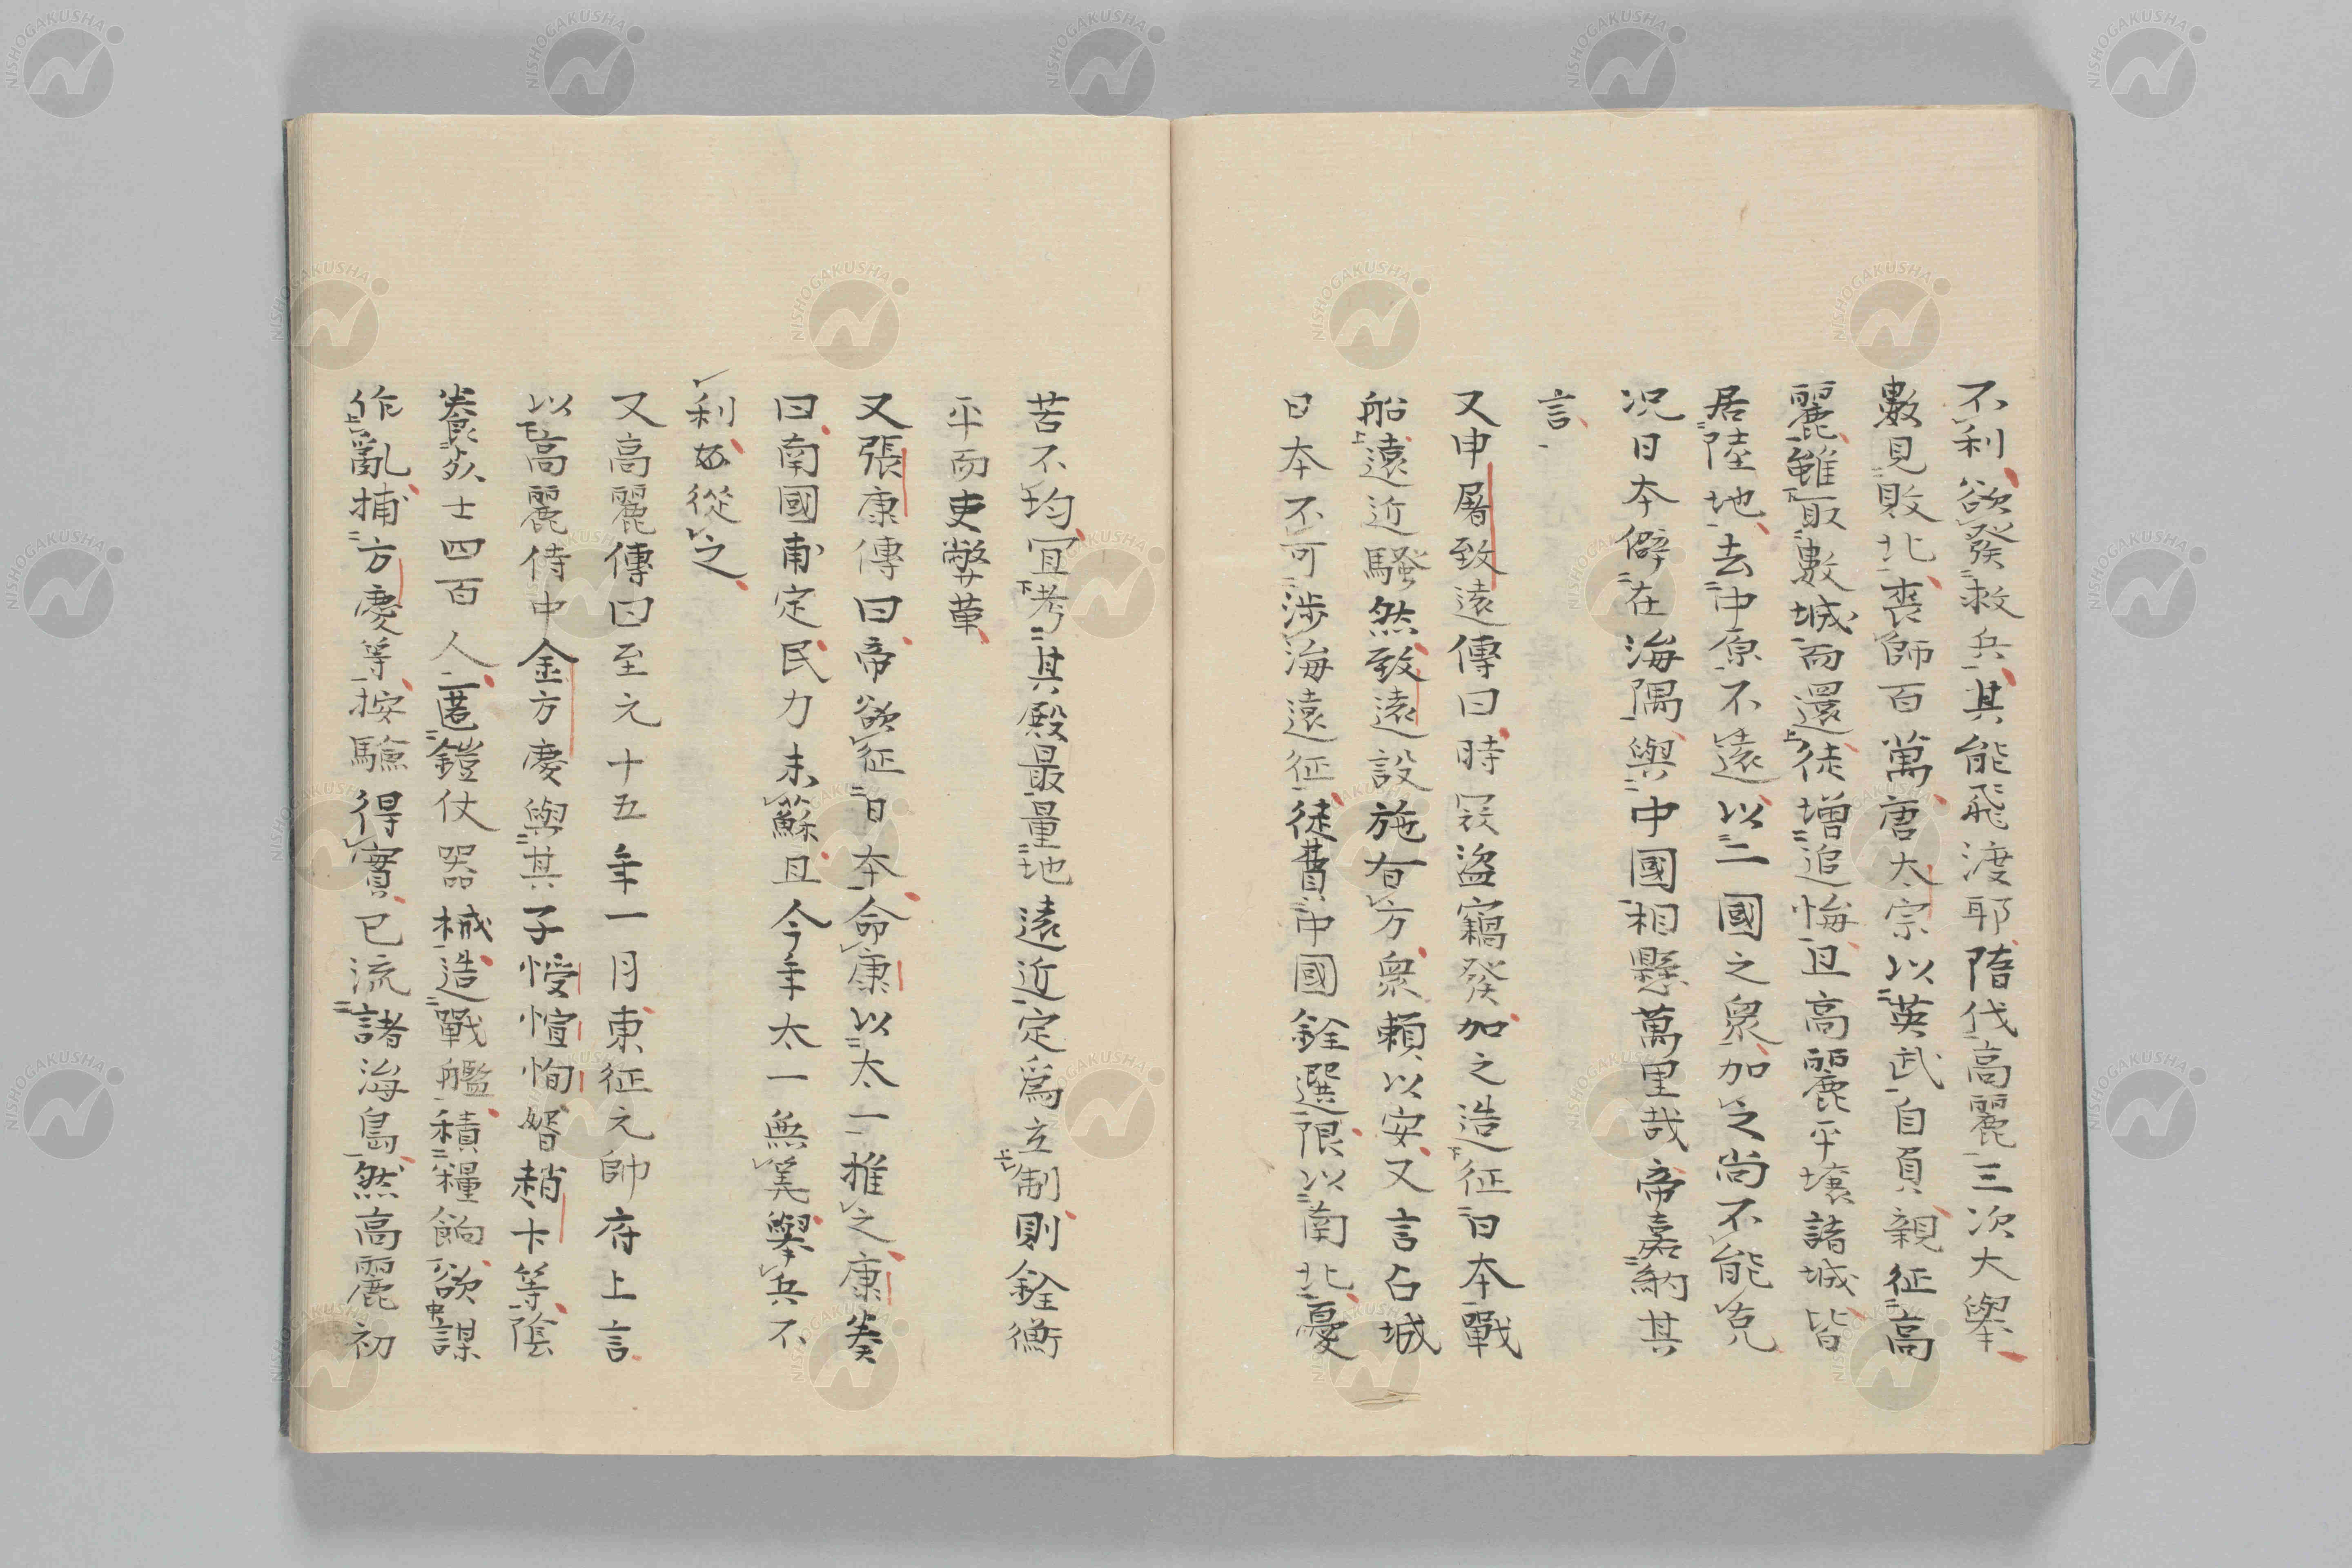 不利欲發救兵其能飛渡耶隋伐高麗三次大擧
數見敗北喪師百萬唐太宗以英武自負親征高
麗雖取數城而還徒增追悔且高麗平壤諸城皆
居陸地去中原不遠以二國之衆加之尚不能克
況日本僻在海隅與中國相懸萬里哉帝嘉納其
言
又申屠致遠傳曰時寇盜竊發加之造征日本戰
船遠近騷然致遠設施有方衆賴以安又言占城
日本不可涉海遠征徒費中國銓選限以南北優
苦不均宜考其殿最量地遠近定爲立制則銓衡
平而吏弊革
又張康傳曰帝欲征日本命康以太一推之康奏
曰南國甫定民力未蘇且今年太一無筭擧兵不
利從之
又高麗傳曰至元十五年一月東征元帥府上言
以高麗侍中金方慶與其子愃恂婿趙卞等陰
養死士四百人匿鎧仗器械造戰艦積糧餉欲謀
作亂捕方慶等按驗得實已流諸海島然高麗初
NISHOGAKUSHA